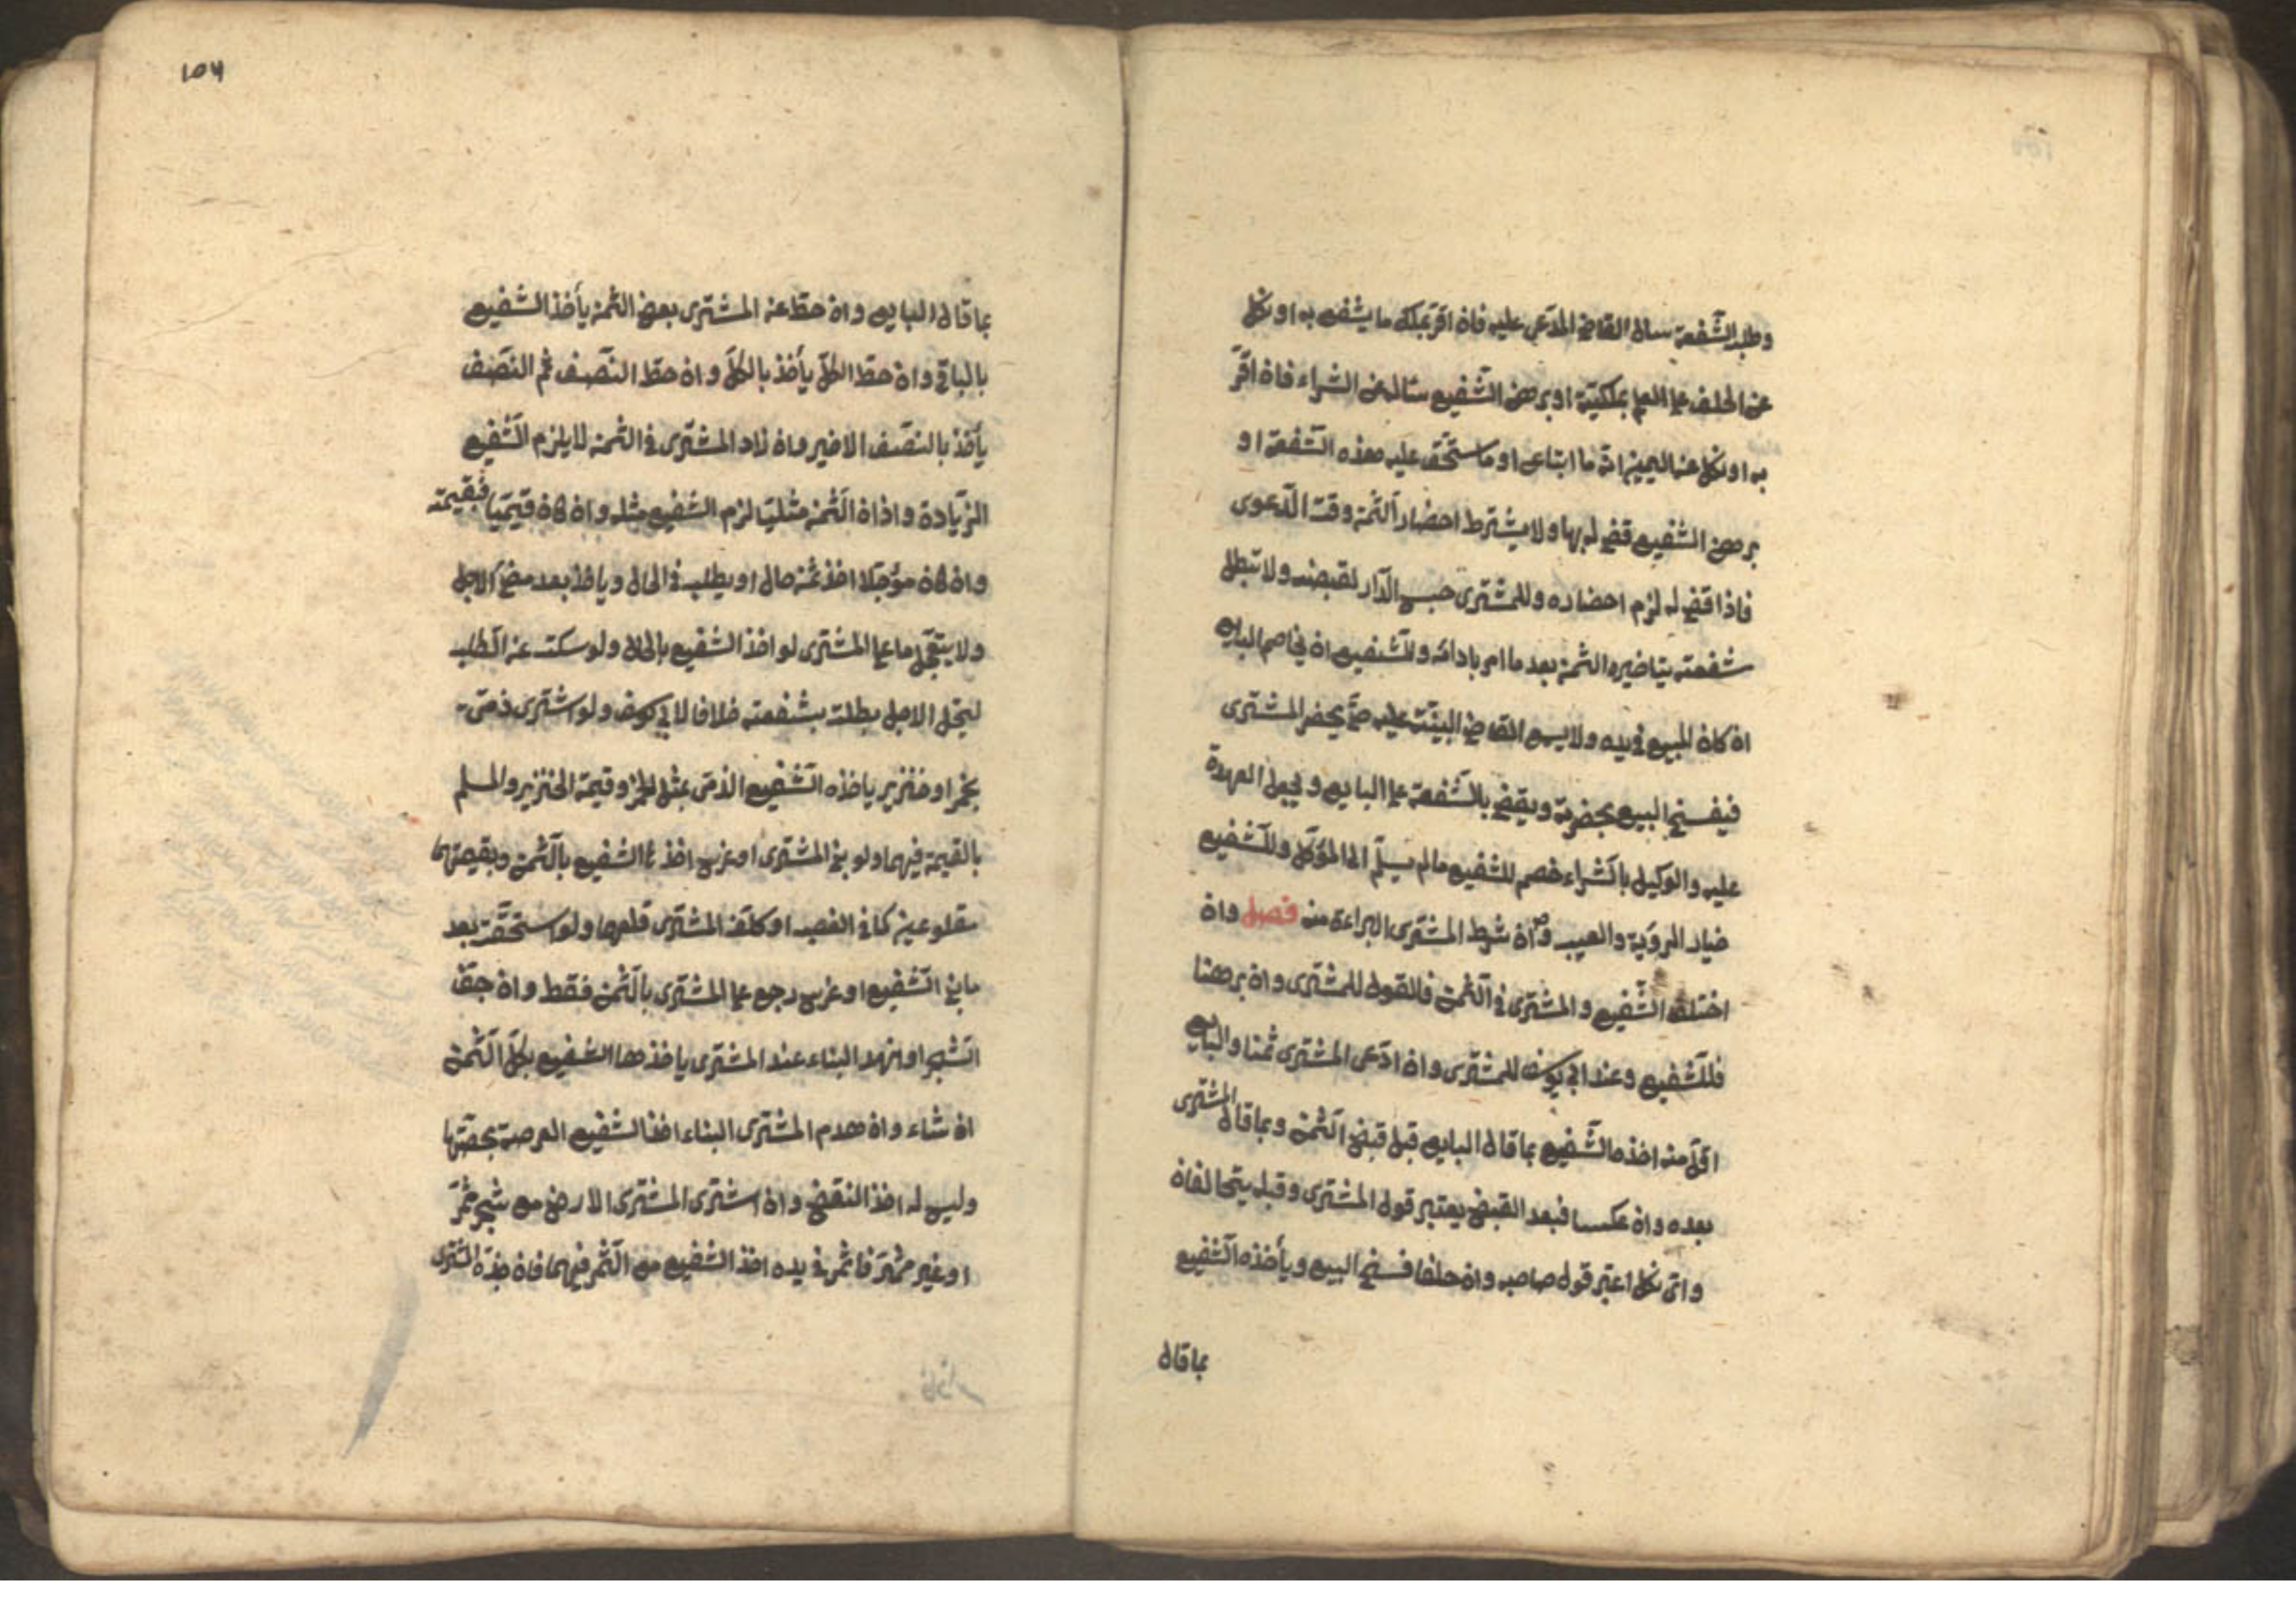 وطلب الشفعة سال القاضي المدعى عليه فان اقر بملك ما يشفع به او نكل
عن الحلف على العلم بملكيته او برهن الشفيع سأله عن الشراء فان اقر
به او نكل عن اليمين انه ما ابتاع او ما يستحق عليه هذه الشفعة او
برهن الشفيع قضي له بها ولا يشترط احضار الثمن وقت الدعوى
فاذا قضي له لزم احضاره وللمشترى حبس الدار لقبضه ولا تبطل
شفعته بتاخيره الثمن بعد ما امر بادائه وللشفيع ان يخاصم البايع
ان كان المبيع في يده ولا يسمع القاضي البينة عليه حتى يحضر المشترى
فيفسخ البيع بحضرته ويقضي بالشفعة على البايع ويجعل العهدة
عليه والوكيل بالشراء خصم للشفيع ما لم يسلم الى المؤكل وللشفيع
خيار الرؤية والعيب وان شرط المشترى البراءة منه فصل وان
اختلف الشفيع والمشترى في الثمن فالقول للمشترى وان برهنا
فللشفيع وعند ابي يوسف للمشترى وان ادعى المشترى ثمنا والبايع
اقل منه اخذها الشفيع بما قال البايع قبل قبض الثمن وبما قال المشترى
بعده وان عكسا فبعد القبض يعتبر قول المشترى وقبله يتحالفان
واي نكل اعتبر قول صاحبه وان حلفا فسخ البيع ويأخذه الشفيع
بما قال
١٥٦
بما قال البايع وان حط عن المشترى بعض الثمن يأخذ الشفيع
بالباقي وان حط الكل يأخذ بالكل وان حط النصف ثم النصف
يأخذ بالنصف الاخير وان زاد المشترى في الثمن لا يلزم الشفيع
الزيادة واذا ان الثمن مثليا لزم الشفيع مثله وان كان قيميا فبقيمته
وان كان مؤجلا اخذ بثمن حال او يطلب في الحال وياخذ بعد مضي الاجل
ولا يتعجل ما على المشترى لو اخذ الشفيع بالحال ولو سكت عن الطلب
ليحل الاجل بطلت شفعته خلافا لابي يوسف ولو اشترى ذمي
بخمر او خنزير ياخذه الشفيع الذمي بمثل الخمر وقيمة الخنزير والمسلم
بالقيمة فيهما ولو بنى المشترى او غرس اخذها الشفيع بالثمن وبقيمتهما
مقلوعين كما في الغصب او كلف المشترى قلعهما ولو استحقت بعد
ما بنى الشفيع او غرس رجع على المشترى بالثمن فقط وان جف
الشجر او انهدم البناء عند المشترى ياخذها الشفيع بكل الثمن
ان شاء وان هدم المشترى البناء اخذ الشفيع العرصة بحصتها
وليس له اخذ النقض وان اشترى المشترى الارض مع شجر مثمر
او غير مثمر فاثمر في يده اخذ الشفيع مع الثمر فيهما فان جذه المشترى